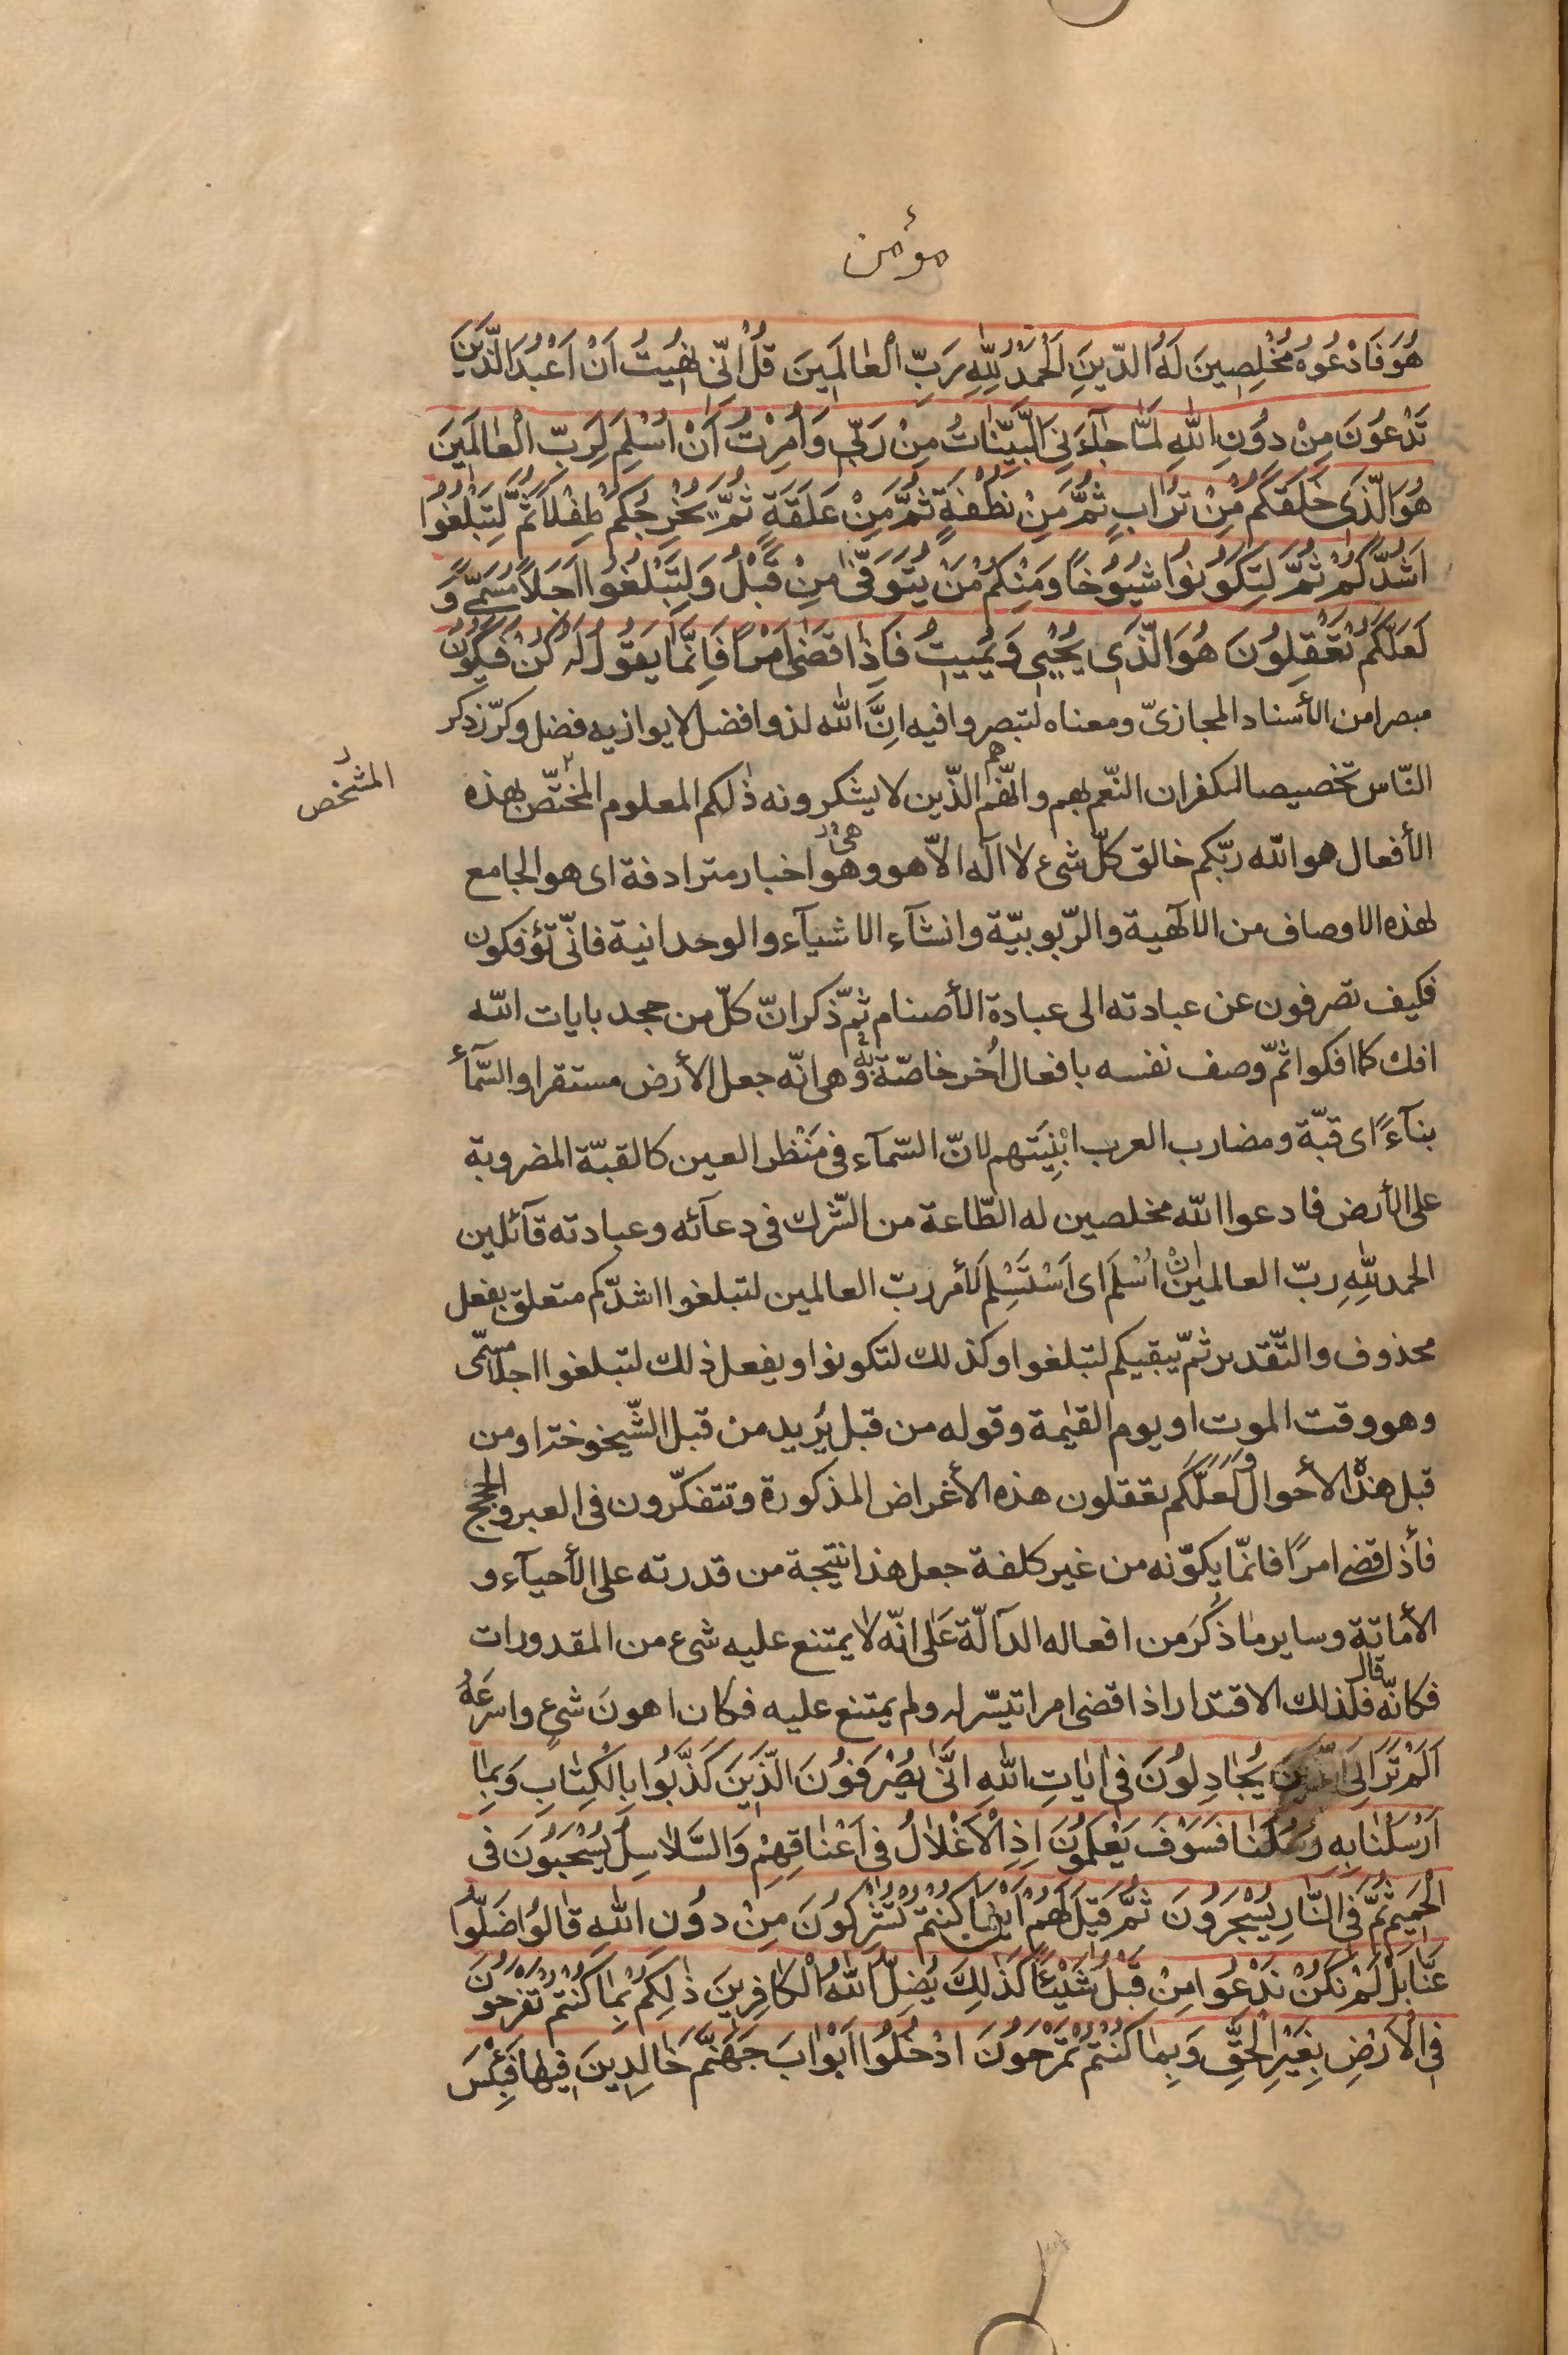 مؤمن
هُوَ فَادْعُوهُ مُخْلِصِينَ لَهُ الدّينَ اَلْحَمْدُ لِلّٰهِ رَبِّ الْعٰالَمِينَ قُلْ اِنّى نُهِيتُ اَنْ اَعْبُدَ الَّذينَ
تَدْعُونَ مِنْ دُونِ اللّٰهِ لَمّٰا جٰآءَنِىَ الْبَيِّنٰاتُ مِنْ رَبّى وَاُمِرْتُ اَنْ اُسْلِمَ لِرَبِّ الْعٰالَمِينَ
هُوَ الَّذى خَلَقَكُمْ مِنْ تُرٰابٍ ثُمَّ مِنْ نُطْفَةٍ ثُمَّ مِنْ عَلَقَةٍ ثُمَّ يُخْرِجُكُمْ طِفْلاً ثُمَّ لِتَبْلُغُوا
اَشُدَّكُمْ ثُمَّ لِتَكُونُوا شُيُوخًا وَمِنْكُمْ مَنْ يُتَوَفّٰى مِنْ قَبْلُ وَلِتَبْلُغُوا اَجَلاً مُسَمًّى وَ
لَعَلَّكُمْ تَعْقِلُونَ هُوَ الَّذى يُحْيى وَيُمِيتُ فَاِذٰا قَضٰى اَمْرًا فَاِنَّمٰا يَقُولُ لَهُ كُنْ فَيَكُونُ
مبصرا من الأسناد المجازىّ ومعناه لتبصروا فيه اِنَّ اللّٰه لذو افضل لا يوازيه فضل وكرّر ذكر
النّاس تخصيصا لكفران النّعم بهم وانّهم هم الذّين لا يشكرونه ذٰلكم المعلوم المختّص بهذه
المشخص
الأفعال هو اللّه ربّكم خالق كلّ شىء لا اله الاّ هو وهى اخبار مترادفة اى هو الجامع
لهذه الاوصاف من الالٰهية والرّبوبيّة وانشآء الاشيآء والوحدانية فانّى تؤفكون
فكيف تصرفون عن عبادته الى عبادة الأصنام ثمّ ذكر انّ كلّ من جحد بايات اللّه
افك كما افكوا ثمّ وصف نفسه بافعال اُخر خاصّة به وهى انّه جعل الأرض مستقرا والسّمآء
بنآءً اى قبّة ومضارب العرب ابْنِيَتهم لانّ السّمآء فى مَنْظر العين كالقبّة المضروبة
على الأرض فادعوا اللّه مخلصين له الطّاعة من الشّرك فى دعآئه وعبادته قآئلين
الحمد للّٰهِ ربّ العالمين ان اُسْلَم اى اَسْتَسْلِم لأمر ربّ العالمين لتبلغوا اشدّكم متعلق بفعل
محذوف والتّقدير ثمّ يبقيكم لتبلغوا وكذلك لتكونوا ويفعل ذلك لتبلغوا اجلا مسمّى
وهو وقت الموت او يوم القيٰمة وقوله من قبل يُريد من قبل الشّيخوخة او من
قبل هذه الأحوال ولَعَلَّكم تعقلون هذه الأغراض المذكورة وتتفكّرون فى العبر والحجج
فأذا قضى امرًا فانمّا يكوّنه من غير كلفة جعل هذا نتيجة من قدرته على الأحيآء و
الأماتة وساير ما ذُكرَ من افعاله الدآلّة عَلى انّه لا يمتنع عليه شىء من المقدورات
فكانّه قال فلذلك الاقتدار اذا قضى امرا تيسّر له ولم يمتنع عليه فكان اهون شىءٍ واسرعَهُ
اَلَمْ تَرَ اِلَى الَّذينَ يُجٰادِلُونَ فى اٰيٰاتِ اللّٰهِ اَنّٰى يُصْرَفُونَ الَّذينَ كَذَّبُوا بِالْكِتٰابِ وَبِمٰا
اَرْسَلْنٰا بِهِ رُسُلَنٰا فَسَوْفَ يَعْلَمُونَ اِذِ الْاَغْلٰالُ فى اَعْنٰاقِهِمْ وَالسَّلٰاسِلُ يُسْحَبُونَ فى
الْحَمِيمِ ثُمَّ فِى النّٰارِ يُسْجَرُونَ ثُمَّ قِيلَ لَهُمْ اَيْنَ مٰا كُنْتُمْ تُشْرِكُونَ مِنْ دُونِ اللّٰهِ قٰالُوا ضَلُّوا
عَنّٰا بَلْ لَمْ نَكُنْ نَدْعُوا مِنْ قَبْلُ شَيْئًا كَذٰلِكَ يُضِلُّ اللّٰهُ الْكٰافِرِينَ ذٰلِكُمْ بِمٰا كُنْتُمْ تَفْرَحُونَ
فِى الْاَرْضِ بِغَيْرِ الْحَقِّ وَبِمٰا كُنْتُمْ تَمْرَحُونَ ادْخُلُوا اَبْوٰابَ جَهَنَّمَ خٰالِدِينَ فِيهٰا فَبِئْسَ